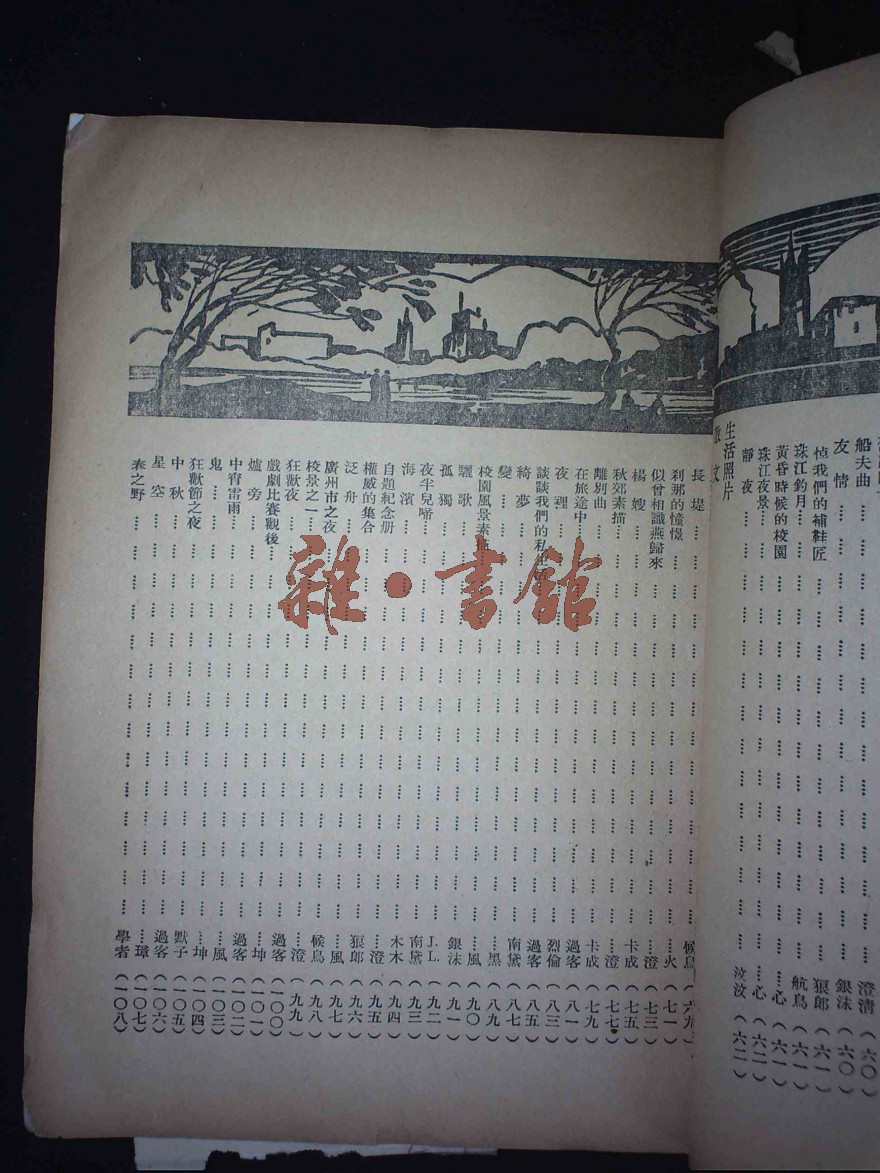 船夫曲 …… 澄清 （六〇）
友情 …… 銀沫 （六〇）
悼我們的補鞋匠 …… 狼郎 （六一）
珠江釣月 …… 航鳥 （六一）
黃昏時候的校園 …… 心 （六一）
珠江夜景 …… 心 （六二）
靜夜 …… 汶汶 （六二）
生活照片
散文
長堤 …… 候鳥 （六九）
刹那的憧憬 …… 火 （七一）
似曾相識燕歸來 …… 澄 （七三）
楊嫂 …… 卡成 （七五）
秋郊素描 …… 澄 （七七）
離別曲 …… 卡成 （七九）
在旅途中 …… 過客 （八一）
夜裡 …… 烈倫 （八三）
談談我們的私生 …… 過客 （八五）
綺夢 …… 南黛 （八七）
變 …… 黑 （八九）
校園風景素描 …… 風 （九〇）
驪歌 …… 銀沫 （九一）
孤獨 …… J.L. （九二）
夜半兒啼 …… 南黛 （九三）
海濱 …… 木木 （九四）
自題紀念册 …… 澄 （九五）
權威的集合 …… 狼郎 （九六）
泛舟 …… 風 （九七）
廣州市之夜 …… 候鳥 （九八）
校景之一 …… 澄 （九九）
狂歡夜 …… 過客 （一〇〇）
戲劇比賽觀後 …… 坤 （一〇一）
爐旁 …… 過客 （一〇二）
中宵雷雨 …… 風 （一〇三）
鬼 …… 坤 （一〇四）
狂歡節之夜 …… 默子 （一〇五）
中秋 …… 過客 （一〇六）
星空 …… 璋 （一〇七）
春之野 …… 學者 （一〇八）
雜·書館